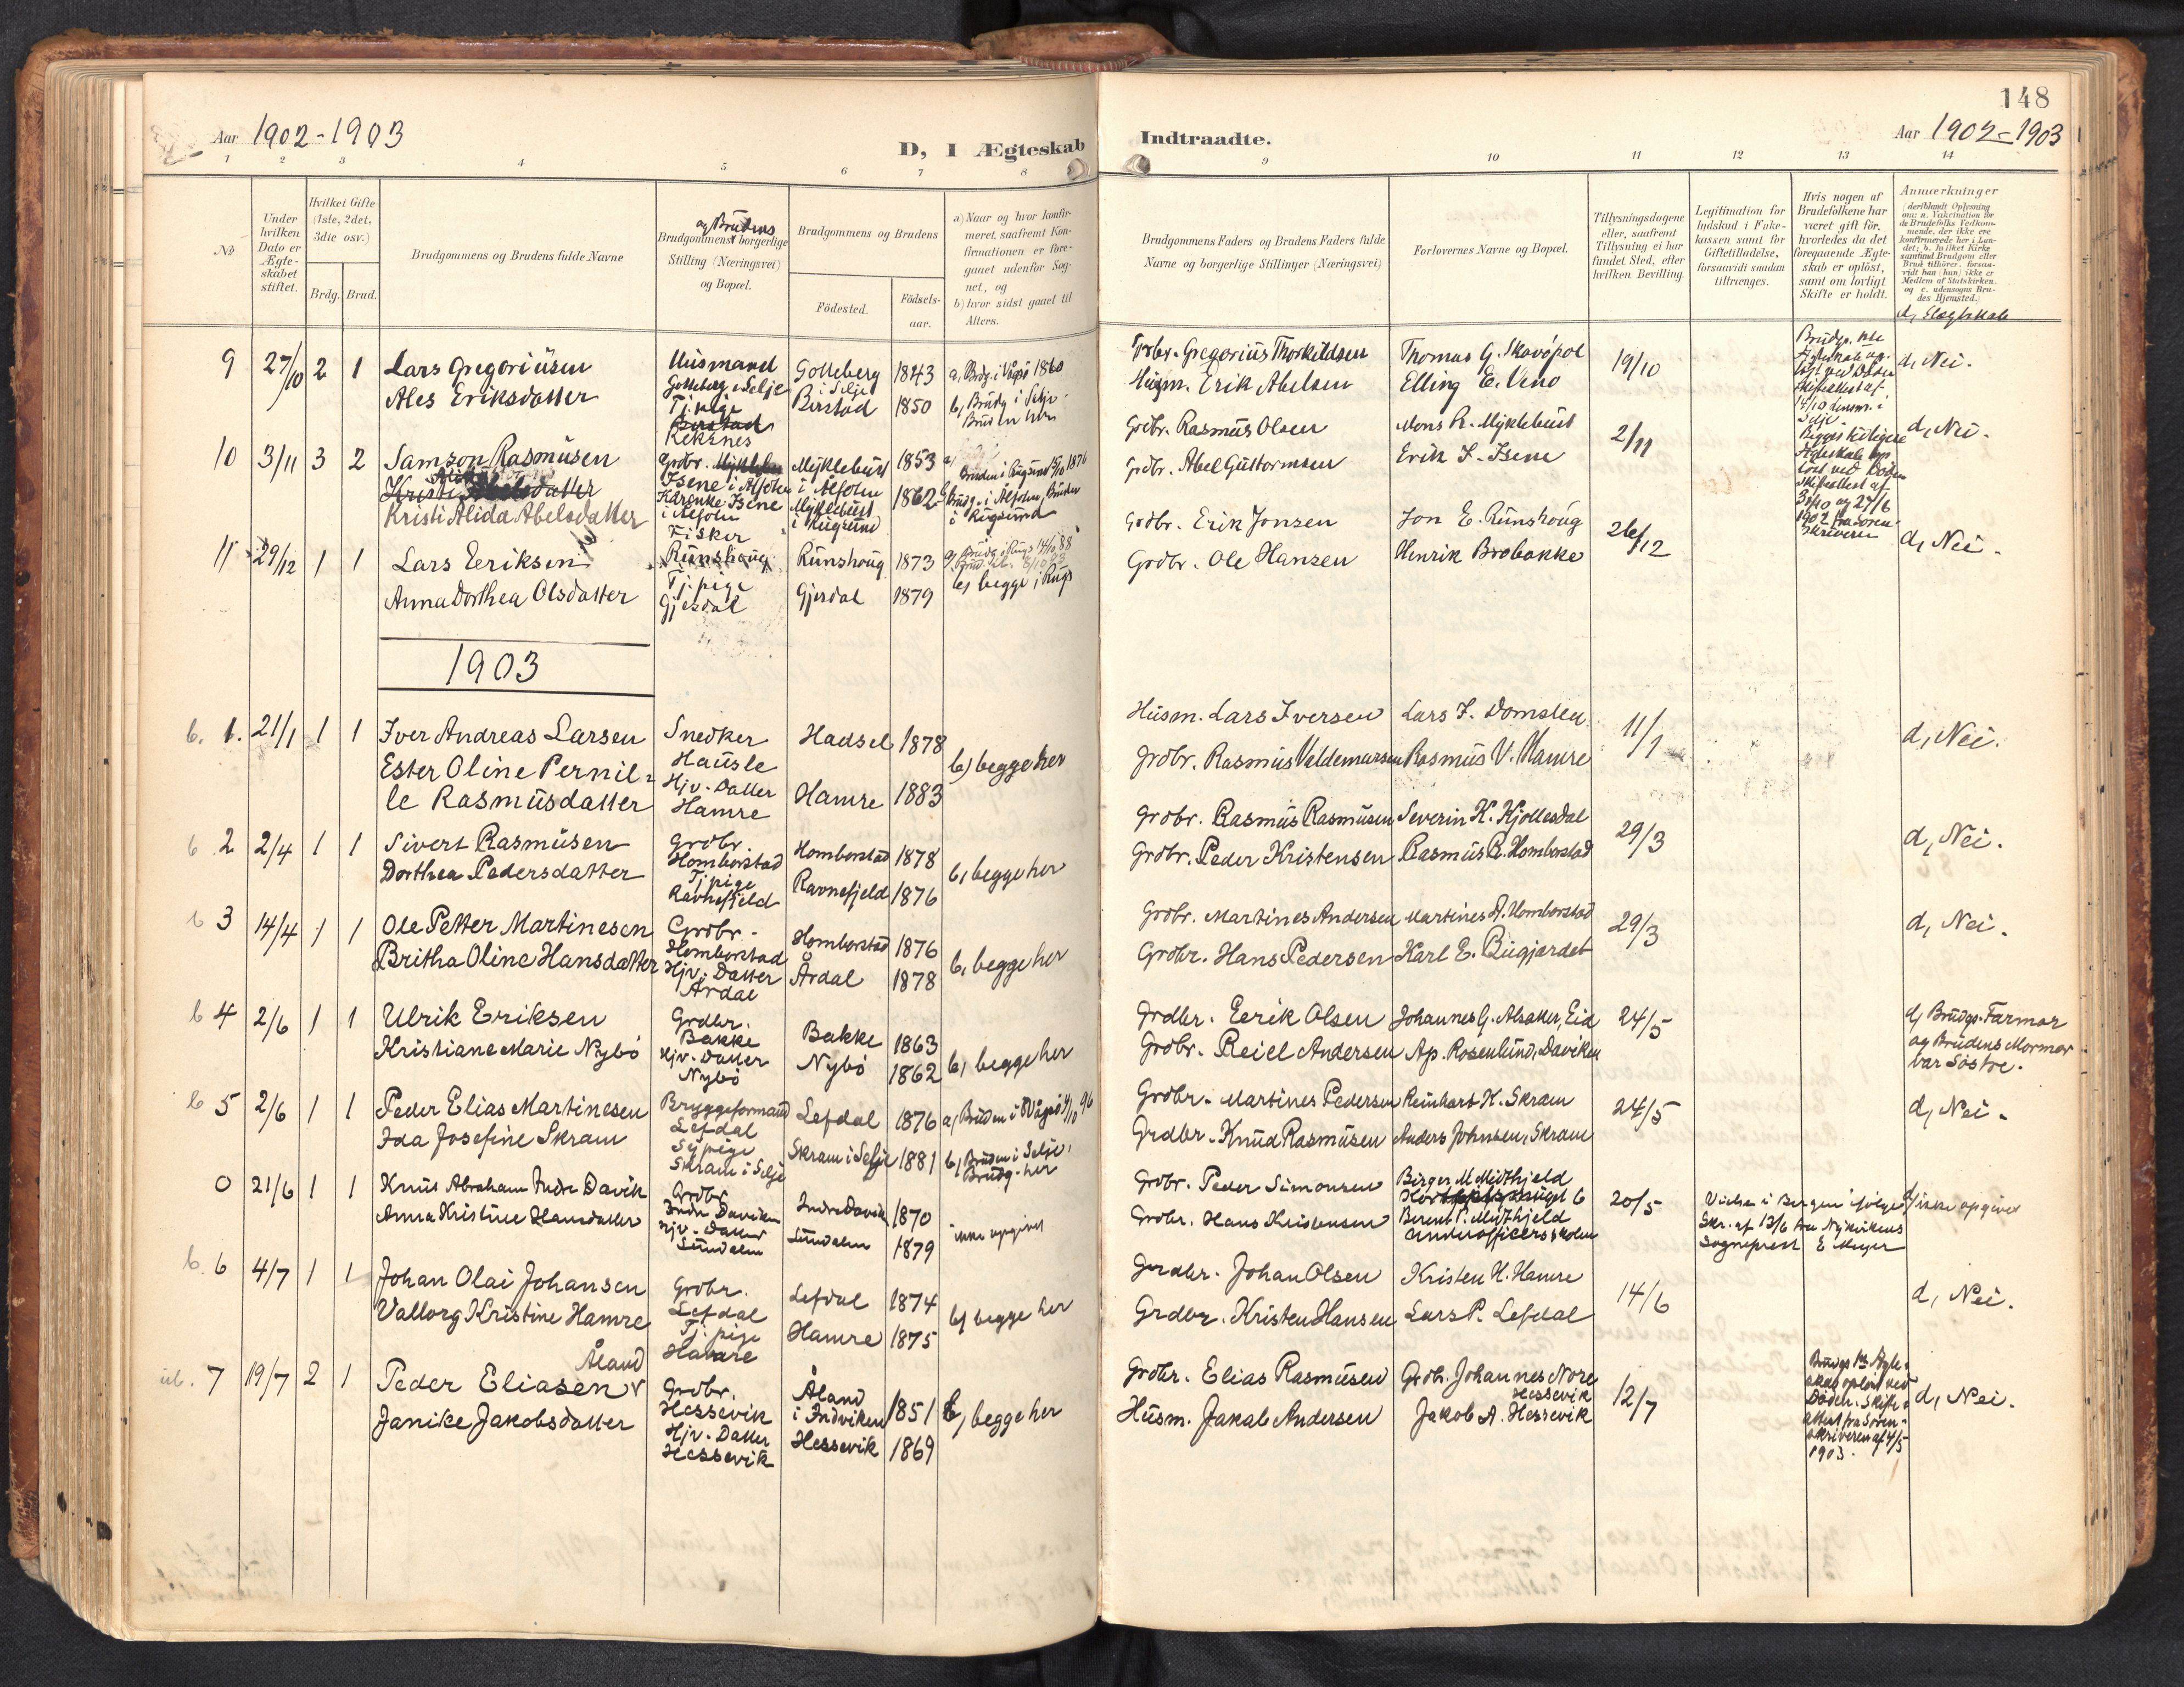 148
Aar 1902-1903
D, I Ægteskab
Indtraadte.
Aar 1902-1903
1 2 3 4 5 6 7 8
9 10 11 12 13 14
No
Under hvilken Dato er Ægteskabet stiftet.
Hvilket Gifte (1ste, 2det, 3die osv.)
Brdg. Brud.
Brudgommens og Brudens fulde Navne
og Brudens
Brudgommens borgerlige Stilling (Næringsvei) og Bopæl.
Brudgommens og Brudens
Födested.
Födsels-aar.
a) Naar og hvor konfirmeret, saafremt Konfirmationen er foregaaet udenfor Sognet, og
b) hvor sidst gaaet til Alters.
Brudgommens Faders og Brudens Faders fulde Navne og borgerlige Stillinger (Næringsvei)
Forlovernes Navne og Bopæl.
Tillysningsdagene eller, saafremt Tillysning ei har fundet Sted, efter hvilken Bevilling.
Legitimation for Indskud i Fakekassen samt for Giftetilladelse, forsaavidt saadan tiltrænges.
Hvis nogen af Brudefolkene har været gift för, hvorledes da det foregaaende Ægteskab er oplöst, samt om lovligt Skifte er holdt.
Anmærkninger
(deriblandt Oplysning om: a. Vakcination for de Brudefolks Vedkommende, der ikke ere konfirmerede her i Landet; b. hvilket Kirkesamfund Brudgom eller Brud tilhörer, forsaavidt han (hun) ikke er Medlem af Statskirken, og c. udensogns Brudes Hjemsted.)
d, Slægtskab
9 27/10 2 1 Lars Gregoriusen Husmand Golleberg i Selje Golleberg i Selje 1843 a, Brdg. i Vågsö 1860
Ales Eriksdatter Tj. pige Berstad Rekenes Berstad 1850 b, Brudg i Selje. Bruden her
Grdbr. Gregorius Thorkildsen Thomas G. Skavöpol 19/10 d, Nei.
Husm. Erik Abelsen Elling E.
10 3/11 3 2 Samson Rasmusen Grdbr. Isene i Aalfoten Myklebust i Aalfoten 1853 a,
Kristi Alida Abelsdatter Myklebust i Rugsund 1862
Bruden i Rugsund 1876
b, Brudg. i Aalfoten, Bruden i Rugsund
Grdbr. Rasmus Olsen Mons R. Myklebust 2/11 d, Nei.
Grdbr. Abel Guttormsen Erik S. Isene
11 29/12 1 1 Lars Eeriksen Fisker Runshoug Runshoug 1873
Anna Dorthea Olsdatter Tj. pige Gjesdal Gjesdal 1879 b, begge i Rugs
Grdbr. Erik Jonsen Jon E. Runshoug 26/12 d, Nei.
Grdbr. Ole Hansen Henrik Brobakke
1903
b. 1. 21/1 1 1 Iver Andreas Larsen Snedker Hausle Hadsel 1878 b) begge her
Ester Oline Pernille Rasmusdatter Hjv. Datter Hamre Hamre 1883
Husm. Lars Iversen Lars I. Domsten 11/1 d, Nei.
Grdbr. Rasmus Valdemarsen Rasmus V. Hamre
b 2 2/4 1 1 Sivert Rasmusen Grdbr. Homborstad Homborstad 1878 b, begge her
Dorthea Pedersdatter Tj. pige Ravnefjeld Ravnefjeld 1876
Grdbr. Rasmus Rasmusen Severin K. Kjöllesdal 29/3 d, Nei.
Grdbr. Peder Kristensen Rasmus R. Homborstad
b 3 14/4 1 1 Ole Petter Martinesen Grdbr. Homborstad Homborstad 1876 b, begge her
Britha Oline Hansdatter Hjv. Datter Årdal Årdal 1878
Grdbr. Martines Andersen Martines A. Homborstad 29/3 d, Nei.
Grdbr. Hans Pedersen Karl E. Bugjærdet
b 4 2/6 1 1 Ulrik Eriksen Grdbr. Bakke Bakke 1863 b, begge her
Kristiane Marie Nybö Hjv. Datter Nybö Nybö 1862
Grdbr. Eerik Olsen Johannes G. Alsaker, Eid 24/5 d, Brudgs. Farmor og Brudens Mormor var Söstre.
Grdbr. Reiel Andersen Ap. Rosenlund, Daviken
b 5 2/6 1 1 Peder Elias Martinesen Bryggeformand Lefdal Lefdal 1876 a, Bruden i S Vågsö 4/10 96
Ida Josefine Skram Sypige Skram i Selje Skram i Selje 1881 b, Bruden i Selje, Brudg. her
Grdbr. Martines Pedersen Reinhart H. Skram 24/5 d, Nei.
Grdbr. Knud Rasmusen Anders Johnsen, Skram
0 21/6 1 1 Knut Abraham Indre Davik Grdbr. Indre Daviken Indre Davik 1870 ikke opgivet
Anna Kristine Hansdatter Hjv. Datter Lundalen Lundalen 1879
Grdbr. Peder Simonsen Birger M Midthjeld 20/5 Viede i Bergen ifölge Skr. af 13/6 fra Nykirkens Sogneprest E Meyer d/ ikke opgivet
Grdbr. Hans Kristensen Berent P. Midthjeld Underofficersskolen
b. 6 4/7 1 1 Johan Olai Johansen Grdbr. Lefdal Lefdal 1874 b, begge her
Valborg Kristine Hamre Tj. pige Hamre Hamre 1875
Grdbr. Johan Olsen Kristen H. Hamre 14/6 d, Nei.
Grdbr. Kristen Hansen Lars P. Lefdal
ub. 7 19/7 2 1 Peder Eliasen Åland Grdbr. Hessevik Åland i Indviken 1851 b, begge her
Janike Jakobsdatter Hjv. Datter Hessevik Hessevik 1869
Grdbr. Elias Rasmusen Grdb. Johannes Nore Hessevik 12/7 Brudgs 1ste Ægteskab oplöst ved Döden. Skifteattest fra Sorenskriveren af 4/5 1903. d, Nei.
Husm. Jakob Andersen Jakob A. Hessevik